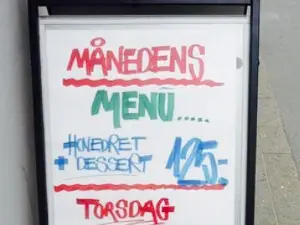 MÅNEDENS
MENU.....
HOVEDRET
+ DESSERT 125.-
TORSDAG